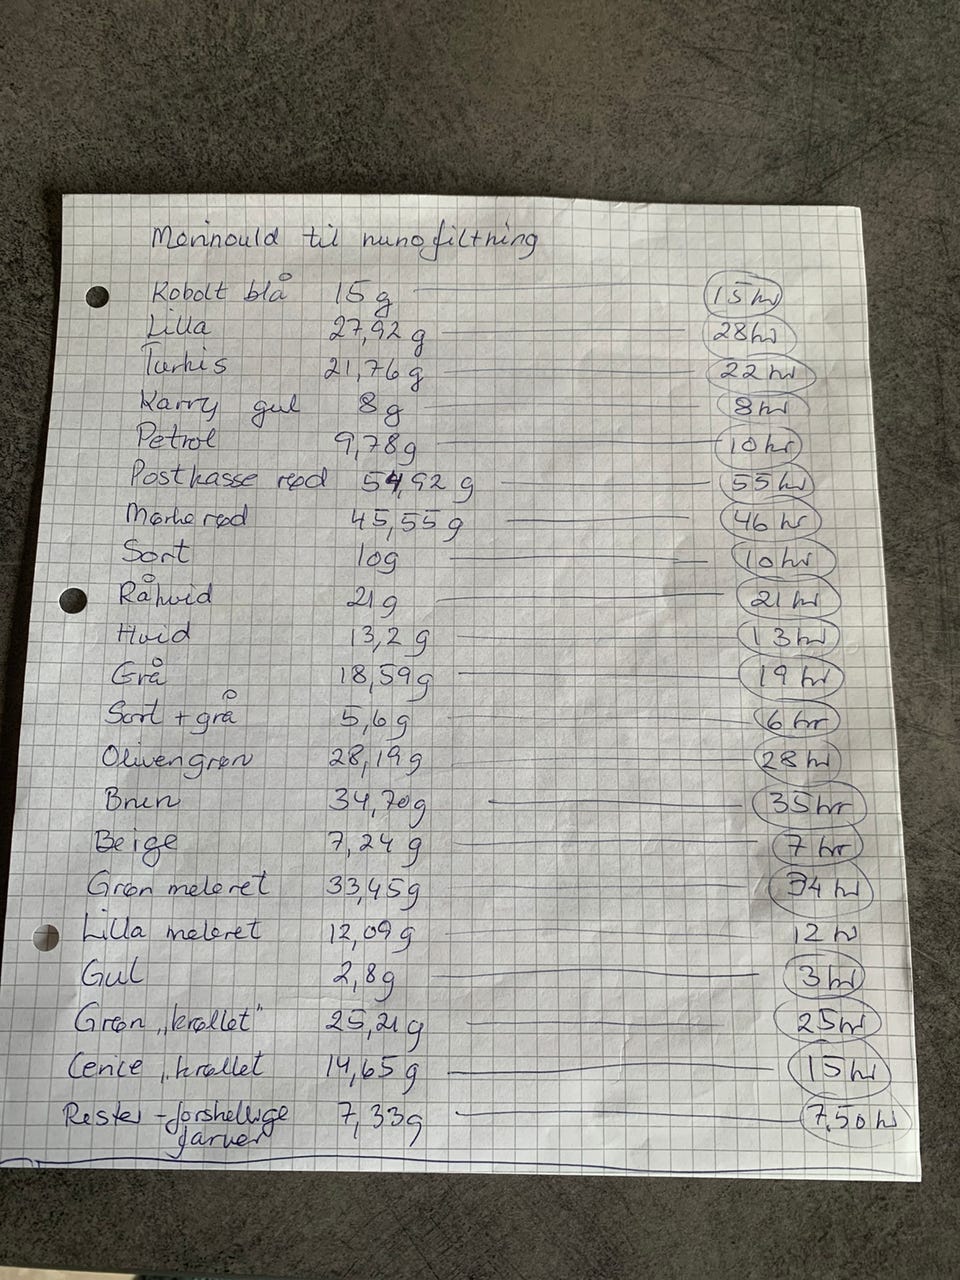 Merinould til nunofiltning
Kobolt blå 15 g 15 kr
Lilla 27,92 g 28 kr
Turkis 21,76 g 22 kr
Karry gul 8 g 8 kr
Petrol 9,78 g 10 kr
Postkasse rød 54,92 g 55 kr
Mørke rød 45,55 g 46 kr
Sort 10g 10 kr
Råhvid 21 g 21 kr
Hvid 13,2 g 13 kr
Grå 18,59 g 19 kr
Sort + grå 5,6 g 6 kr
Olivengrøn 28,19 g 28 kr
Brun 34,70 g 35 kr
Beige 7,24 g 7 kr
Grøn meleret 33,45 g 34 kr
Lilla meleret 12,09 g 12 kr
Gul 2,8 g 3 kr
Grøn „krøllet" 25,21 g 25 kr
Cerice „krøllet 14,65 g 15 kr
Rester - forskellige 7,33 g 7,50 kr
farver